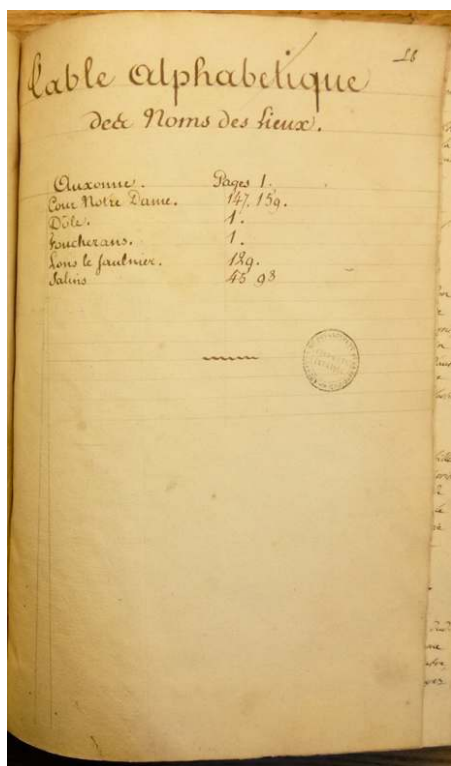 18
Table Alphabetique
des Noms des Lieux.
Auxonne. Pages 1.
Cour Notre Dame. 147. 159.
Dôle. 1.
Foucherans. 1.
Lons le Saulnier. 129.
Salins 45 93